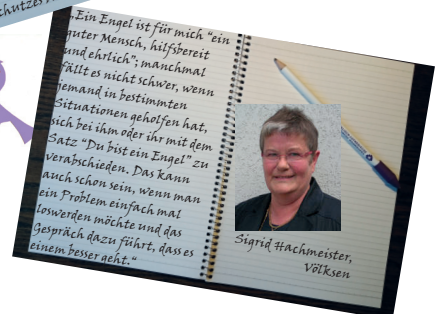 schutzes
„Ein Engel ist für mich "ein
guter Mensch, hilfsbereit
und ehrlich"; manchmal
fällt es nicht schwer, wenn
jemand in bestimmten
Situationen geholfen hat,
sich bei ihm oder ihr mit dem
Satz "Du bist ein Engel" zu
verabschieden. Das kann
auch schon sein, wenn man
ein Problem einfach mal
loswerden möchte und das
Gespräch dazu führt, dass es
einem besser geht."
Sigrid Hachmeister,
Völksen